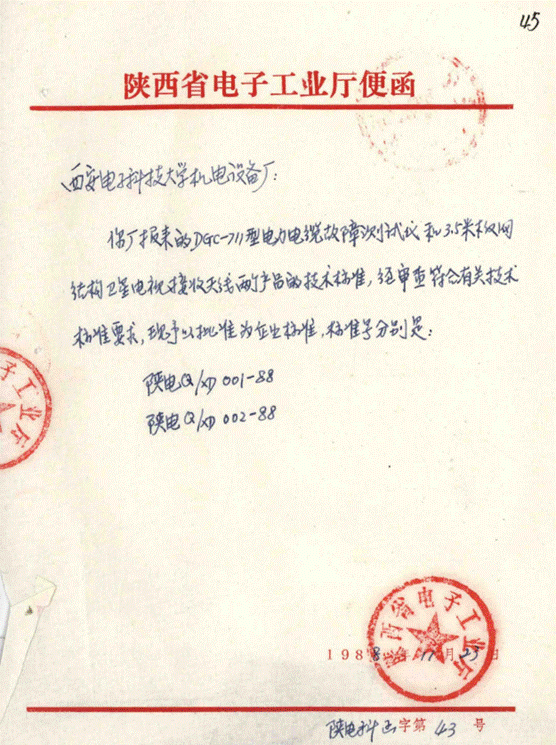 45
陕西省电子工业厅便函
西安电子科技大学机电设备厂：
你厂报来的DGC-711型电力电缆故障测试仪和3.5米板网
结构卫星电视接收天线两产品的技术标准，经审查符合有关技术
标准要求，现予以批准为企业标准，标准号分别是：
陕电Q/XD 001-88
陕电Q/XD 002-88
电子工业厅
陕西省电子工业厅
1988年11月23日
陕电科函字第43号